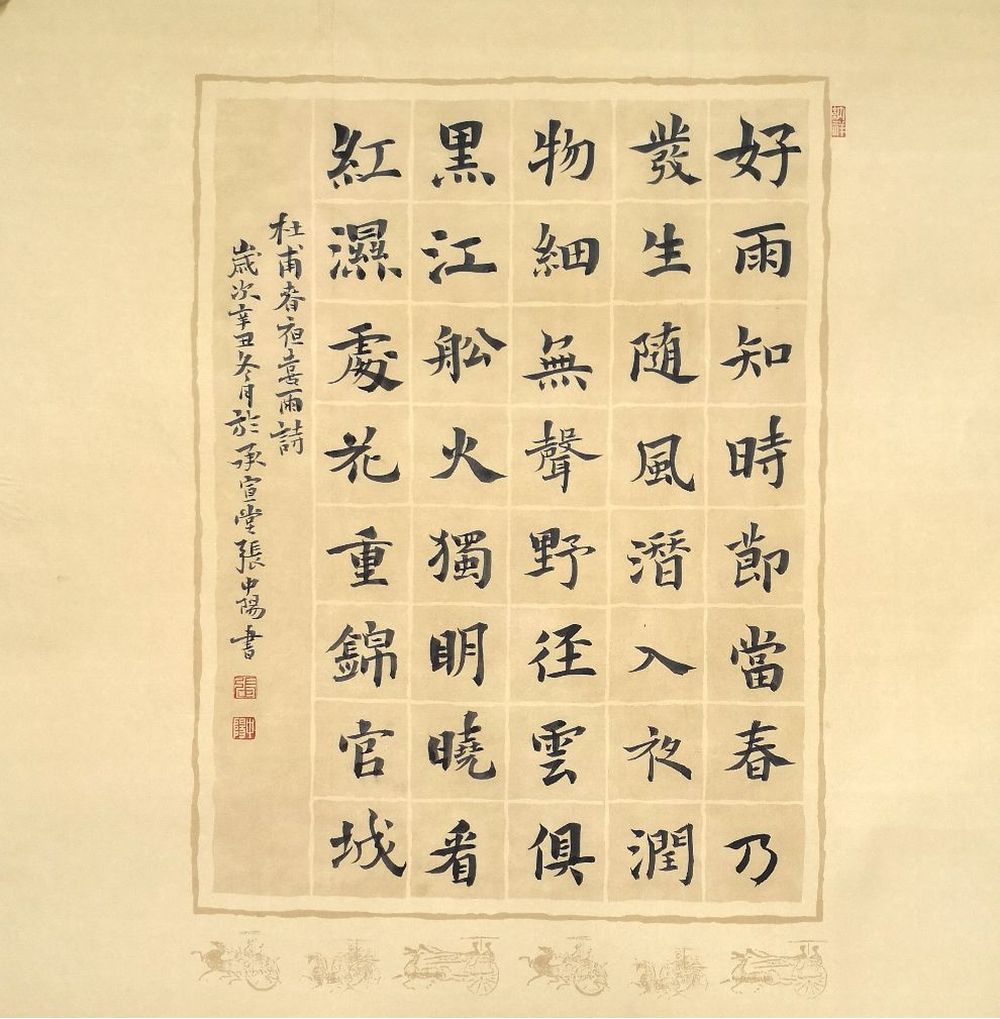 好雨知時節當春乃
發生随風潛入夜潤
物細無聲野径雲俱
黑江舩火獨明曉看
紅濕處花重錦官城
杜甫春夜喜雨詩
歲次辛丑冬月於承宣堂張中陽書